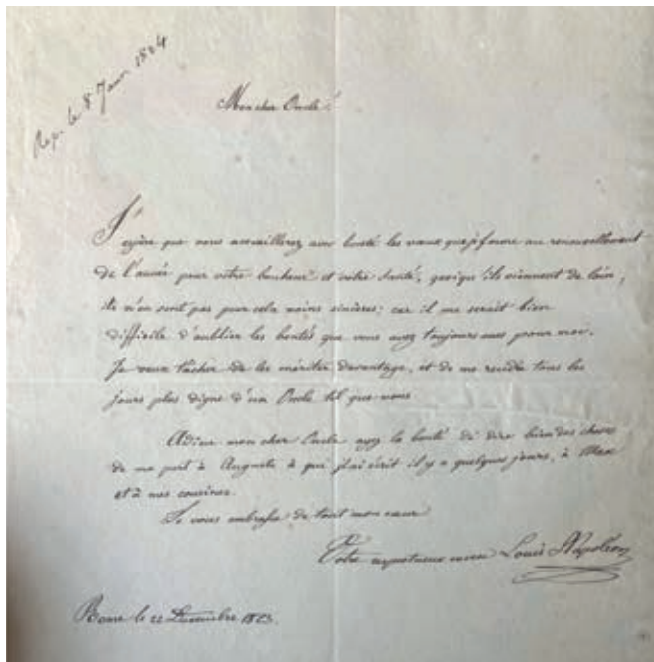 Rep. le 8 Janv 1824
Mon cher Oncle!
J'espère que vous accueillerez avec bonté les vœux que je forme au renouvellement
de l'année pour votre bonheur et votre santé, quoiqu'ils viennent de loin,
ils n'en sont pas pour cela moins sincères; car il me serait bien
difficile d'oublier les bontés que vous avez toujours eues pour moi.
Je veux tâcher de les mériter davantage, et de me rendre tous les
jours plus digne d'un Oncle tel que vous
Adieu mon cher Oncle ayez la bonté de dire bien des choses
de ma part à Auguste à qui j'ai écrit il y a quelques jours, à Max
et à mes cousines.
Je vous embrasse de tout mon cœur
Votre respectueux neveu Louis Napoléon
Rome le 22 Décembre 1823.